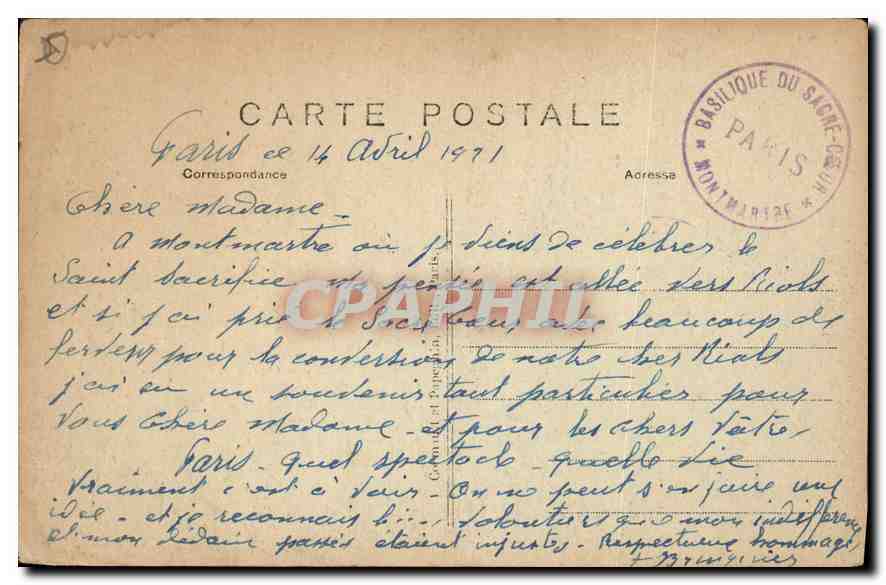 CARTE POSTALE
BASILIQUE DU SACRÉ-CŒUR
PARIS
MONTMARTRE
Paris ce 14 Avril 1921
Correspondance
Adresse
Chère Madame -
A Montmartre où je viens de célébrer le
Saint Sacrifice ma pensée est allée vers Riols
et si j'ai prié le Sacré Coeur avec beaucoup de
ferveur pour la conversion de notre cher Riols
j'ai eu un souvenir tout particulier pour
vous Chère Madame - et pour les chers Vôtres
Paris - quel spectacle - quelle vie
vraiment c'est à voir - On ne peut s'en faire une
idée - et je reconnais bien volontiers que mon indifférence
et mon dédain passés étaient injustes - Respectueux hommages
CPAPHIL